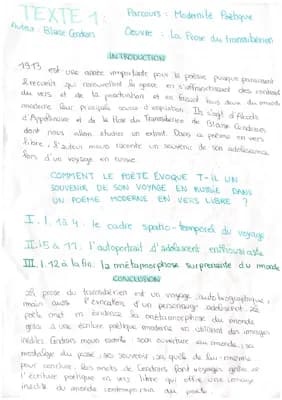 TEXTE 1 :
Parcours : Modernité Poétique
Auteur : Blaise Cendrars
Oeuvre : La Prose du transsibérien
INTRODUCTION
1913 est une année importante pour la poésie puisque paraissent
2 recueils qui renouvellent le genre en s'affranchissant des contraintes
du vers et de la ponctuation et en faisant tous deux du monde
moderne leur principale source d'inspiration. Il s'agit d'Alcools
d'Appolinaire et de la Prose du Transsibérien de Blaise Cendrars
dont nous allons étudier un extrait. Dans ce poème en vers
libre, l'auteur nous raconte un souvenir de son adolescence
lors d'un voyage en russie.
COMMENT LE POÈTE ÉVOQUE T-IL UN
SOUVENIR DE SON VOYAGE EN RUSSIE DANS
UN POÈME MODERNE EN VERS LIBRE ?
I. l. 1 à 4. le cadre spatio-temporel du voyage
II. l. 5 à 11. l'autoportrait d'adolescent enthousiaste
III. l. 12 à la fin. la métamorphose surprenante du monde
CONCLUSION
La prose du transsibérien est un voyage autobiographique,
mais aussi l'évocation d'un personnage adolescent. Le
poète met en évidence la métamorphose du monde
grâce à une écriture poétique moderne en utilisant des images
inédites. Cendrars nous montre son ouverture au monde, sa
nostalgie du passé, ses souvenirs, sa quête de lui-même
pour conclure. Les mots de Cendrars font voyager grâce à
l'écriture poétique en vers libre qui offre une image
inédite du monde contemporain du poète.